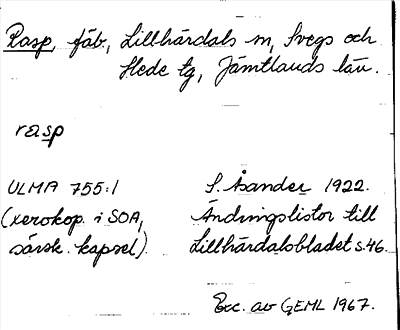 Rasp, fäb., Lillhärdals sn, Svegs och
Hede tg, Jämtlands län.
rasp
ULMA 755:1
(xerokop. i SOA,
särsk. kapsel).
S. Åsander 1922.
Ändringslistor till
Lillhärdalsbladet s.46.
Exc. av GEML 1967.